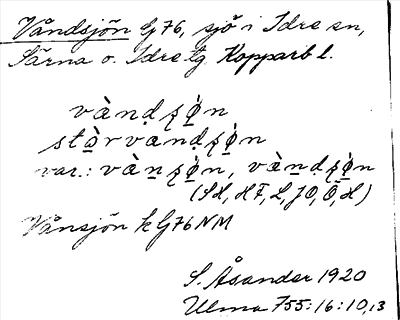 Våndsjön G76, sjö i Idre sn,
Särna o. Idre tg Kopparb l.
vàndʂø̀n
stòrvandʂø̀n
var.: vànʂø̀n, vàndʂø̀n
(SH, HF, L, JO, Ö, H)
Vånsjön k G76 NM
S. Åsander 1920
Ulma 755:16:10,13